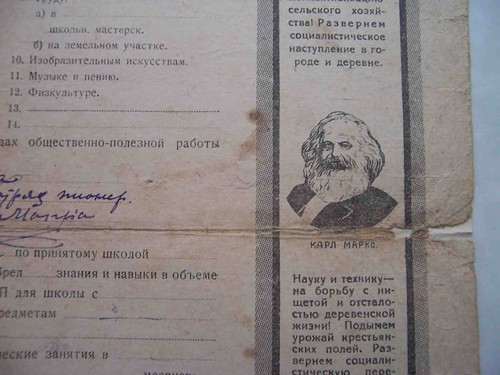 а) в
школьн. мастерск.
б) на земельном участке.
10. Изобразительным искусствам.
11. Музыке и пению.
12. Физкультуре.
13.
14.
дах общественно-полезной работы
отряд пионер.
по принятому школой
брел знания и навыки в объеме
П для школы с
редметам
ческие занятия в
сельского хозяй-
ства! Развернем
социалистическое
наступление в го-
роде и деревне.
КАРЛ МАРКС.
Науку и технику—
на борьбу с ни-
щетой и отстало-
стью деревенской
жизни! Подымем
урожай крестьян-
ских полей. Раз-
вернем социали-
стическую пере-